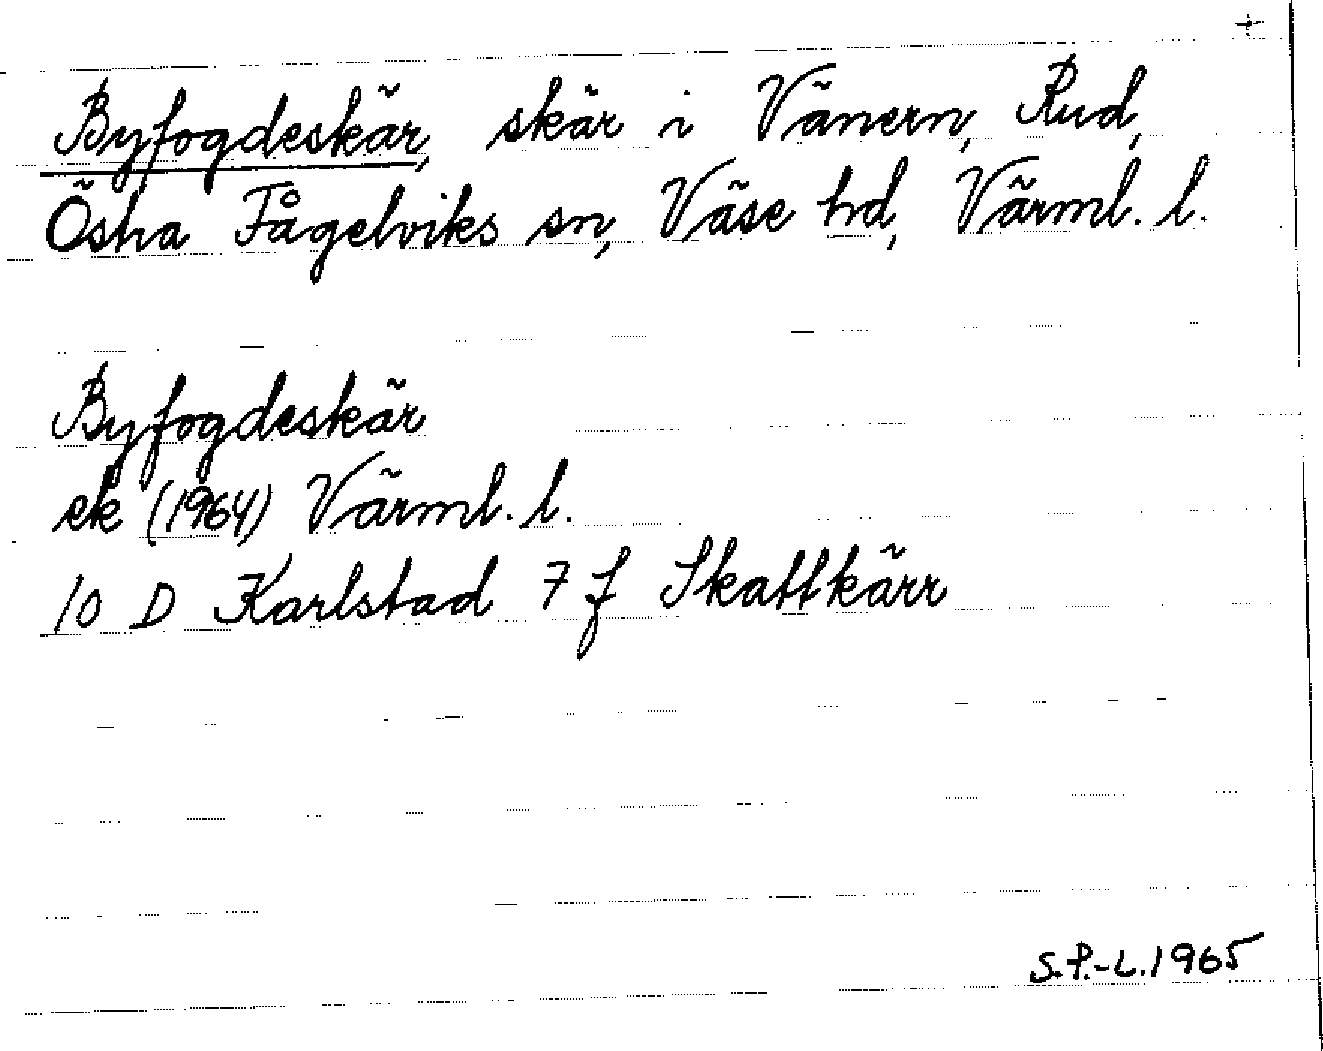 +
Byfogdeskär, skär i Vänern, Rud,
Östra Fågelviks sn, Väse hd, Värml. l.
Byfogdeskär
ek (1964) Värml. l.
10 D Karlstad 7 f Skattkärr
S.P.-L.1965